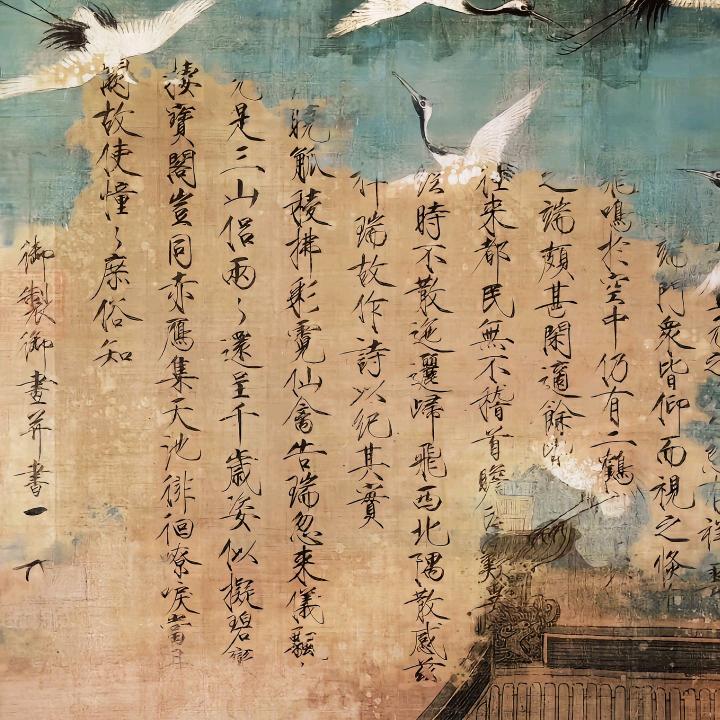 元之
門眾皆仰而視之倏
飛鳴於空中仍有二鶴
之端頗甚閑適餘皆
往來都民無不稽首瞻
經時不散迤邐歸飛西北隅散感茲
瑞故作詩以紀其實
曉觚稜拂彩霓仙禽告瑞忽來儀飄〻
元是三山侶兩〻還呈千歲姿似擬碧鸞
棲寶閣豈同赤鴈集天池徘徊嘹唳當丹
闕故使憧〻庶俗知
御製御畫并書